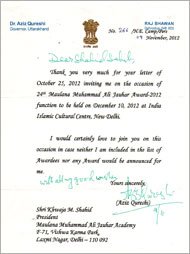 Dr. Aziz Qureshi
Governor, Uttarakhand
RAJ BHAWAN
No. 266 /H.E. Camp/
November, 2012
Dear Shahid Sahib,
Thank you very much for your letter of
October 25, 2012 inviting me on the occasion of
24th Maulana Muhammad Ali Jauhar Award-2012
function to be held on December 10, 2012 at India
Islamic Cultural Centre, New Delhi.
I would certainly love to join you on this
occasion in case neither I am included in the list of
Awardees nor any Award would be announced for
me.
with all good wishes
Yours sincerely,
(Aziz Qureshi)
Shri Khwaja M. Shahid
President
Maulana Muhammad Ali Jauhar Academy
F-71, Vishwa Karma Park
Laxmi Nagar, Delhi – 110 092